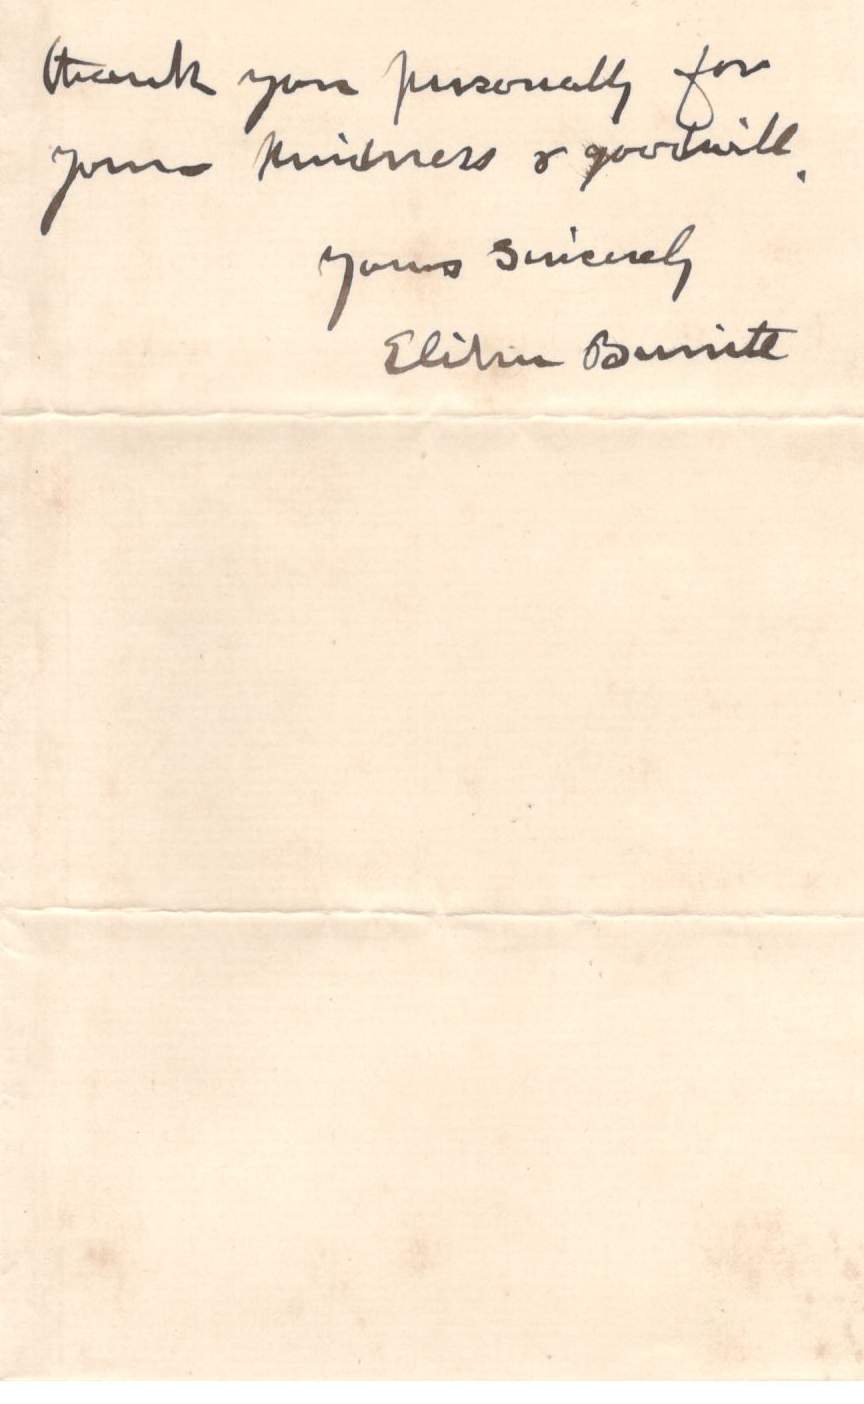 thank you personally for
your kindness & goodwill.
Yours Sincerely
Elihu Burritt